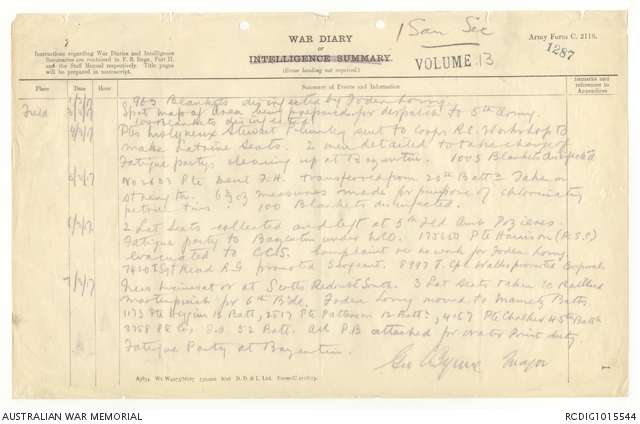 WAR DIARY
or
INTELLIGENCE SUMMARY.
(Erase heading not required.)
Instructions regarding War Diaries and Intelligence
Summaries are contained in F. S. Regs., Part II.
and the Staff Manual respectively. Title pages
will be prepared in manuscript.
1 San Sec
Army Form C. 2118.
1287
VOLUME 13
Place Date Hour Summary of Events and Information Remarks and references to Appendices
Field 963 Blankets disinfected by Foden Lorry.
3/3/17 Spot map of area being prepared for despatch to 5th Army.
100 Blankets disinfected
4/3/17 Ptes Stewart sent to Corps R.E. Workshop to
make Latrine Seats. 2 men detailed to take charge of
Fatigue partys cleaning up at Bazentin. 1005 Blankets
Pte F.H. transferred from 20th Battn Taken on
strength. measures made for purpose of chlorinating
petrol tins. 100 Blankets disinfected.
6/3/17 2 Lat seats collected and left at 5th Fld Amb Pozieres.
Fatigue party to Bazentin under NCO. Pte Harrison (A.S.C)
evacuated to C.C.S. Complaint re no work for Foden Lorry
Sgt Read R.G promoted Sergeant. Corporal
7/3/17 New incinerator at Scotts Redoubt South. 3 Lat Seats taken to
for 6th Bde. Foden lorry moved to Mametz Baths.
1173 Pte Higgins Batt, 2517 Pte Patterson 12 Battn, 4057 Pte 45th Battn
Pte 52 Batt. all P.B attached for Water Point duty
Fatigue Party at Bazentin.
Major
A5834 Wt. W4973/M687 D. D. & L. Ltd. Forms/C.2118/13.
AUSTRALIAN WAR MEMORIAL
RCDIG1015544